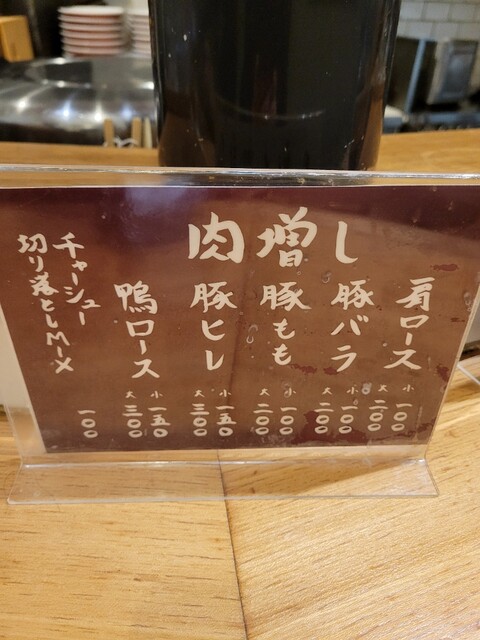 肉増し
肩ロース
小 一〇〇
大 二〇〇
豚バラ
小 一〇〇
大 二〇〇
豚もも
小 一〇〇
大 二〇〇
豚ヒレ
小 一五〇
大 三〇〇
鴨ロース
小 一五〇
大 三〇〇
チャーシュー
切り落としMIX
一〇〇